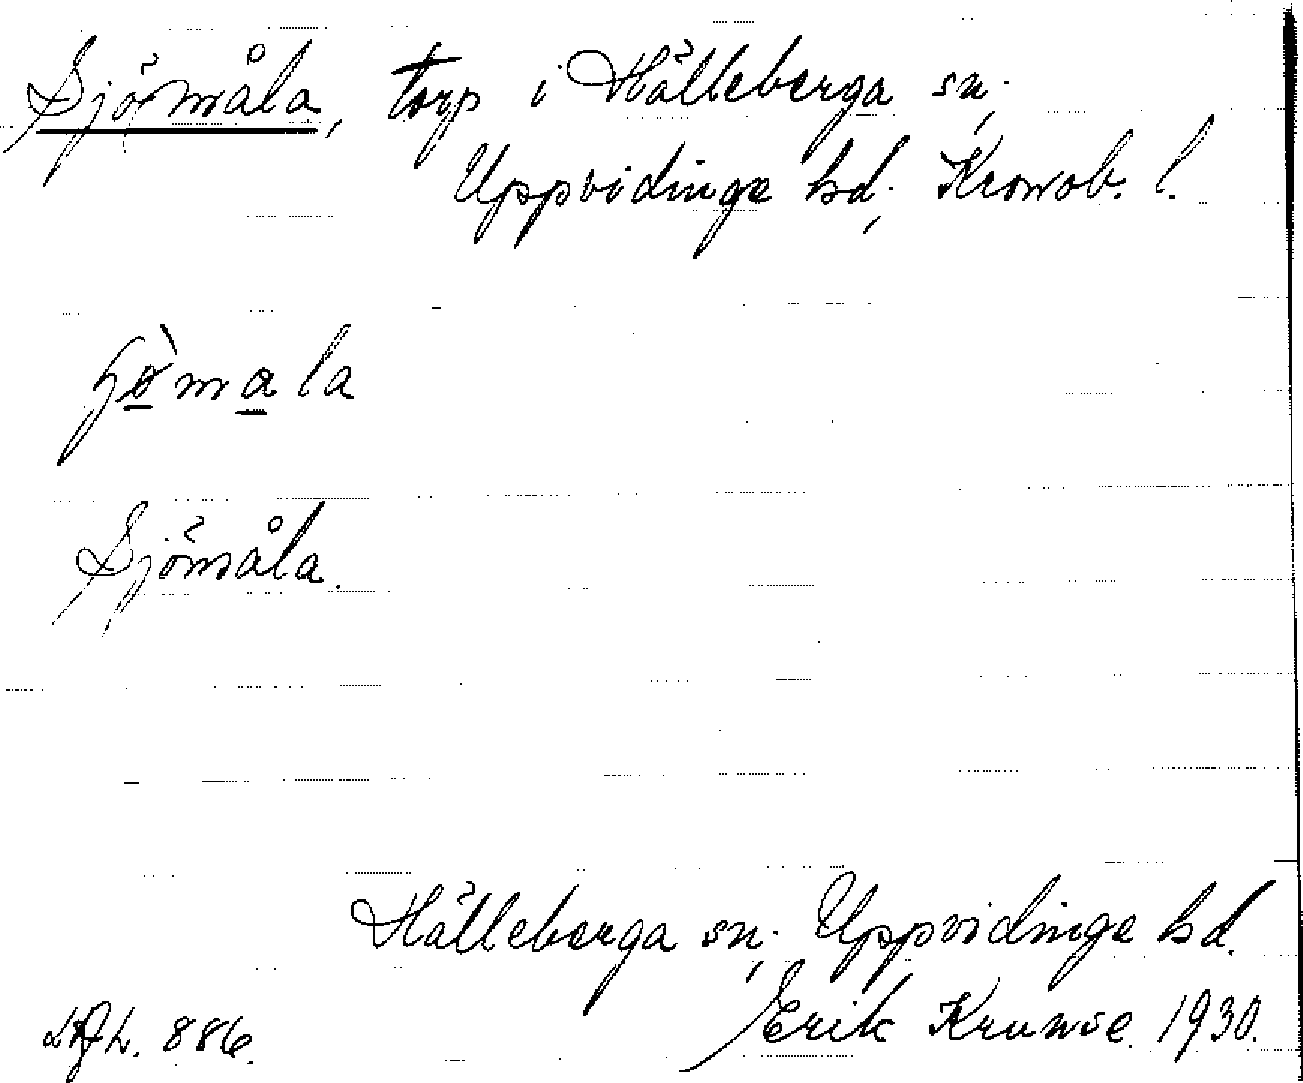 Sjömåla, torp i Hälleberga sn,
Uppvidinge hd, Kronob. l.
Sjömåla.
Hälleberga sn, Uppvidinge hd.
Erik Krumse 1930.
886.